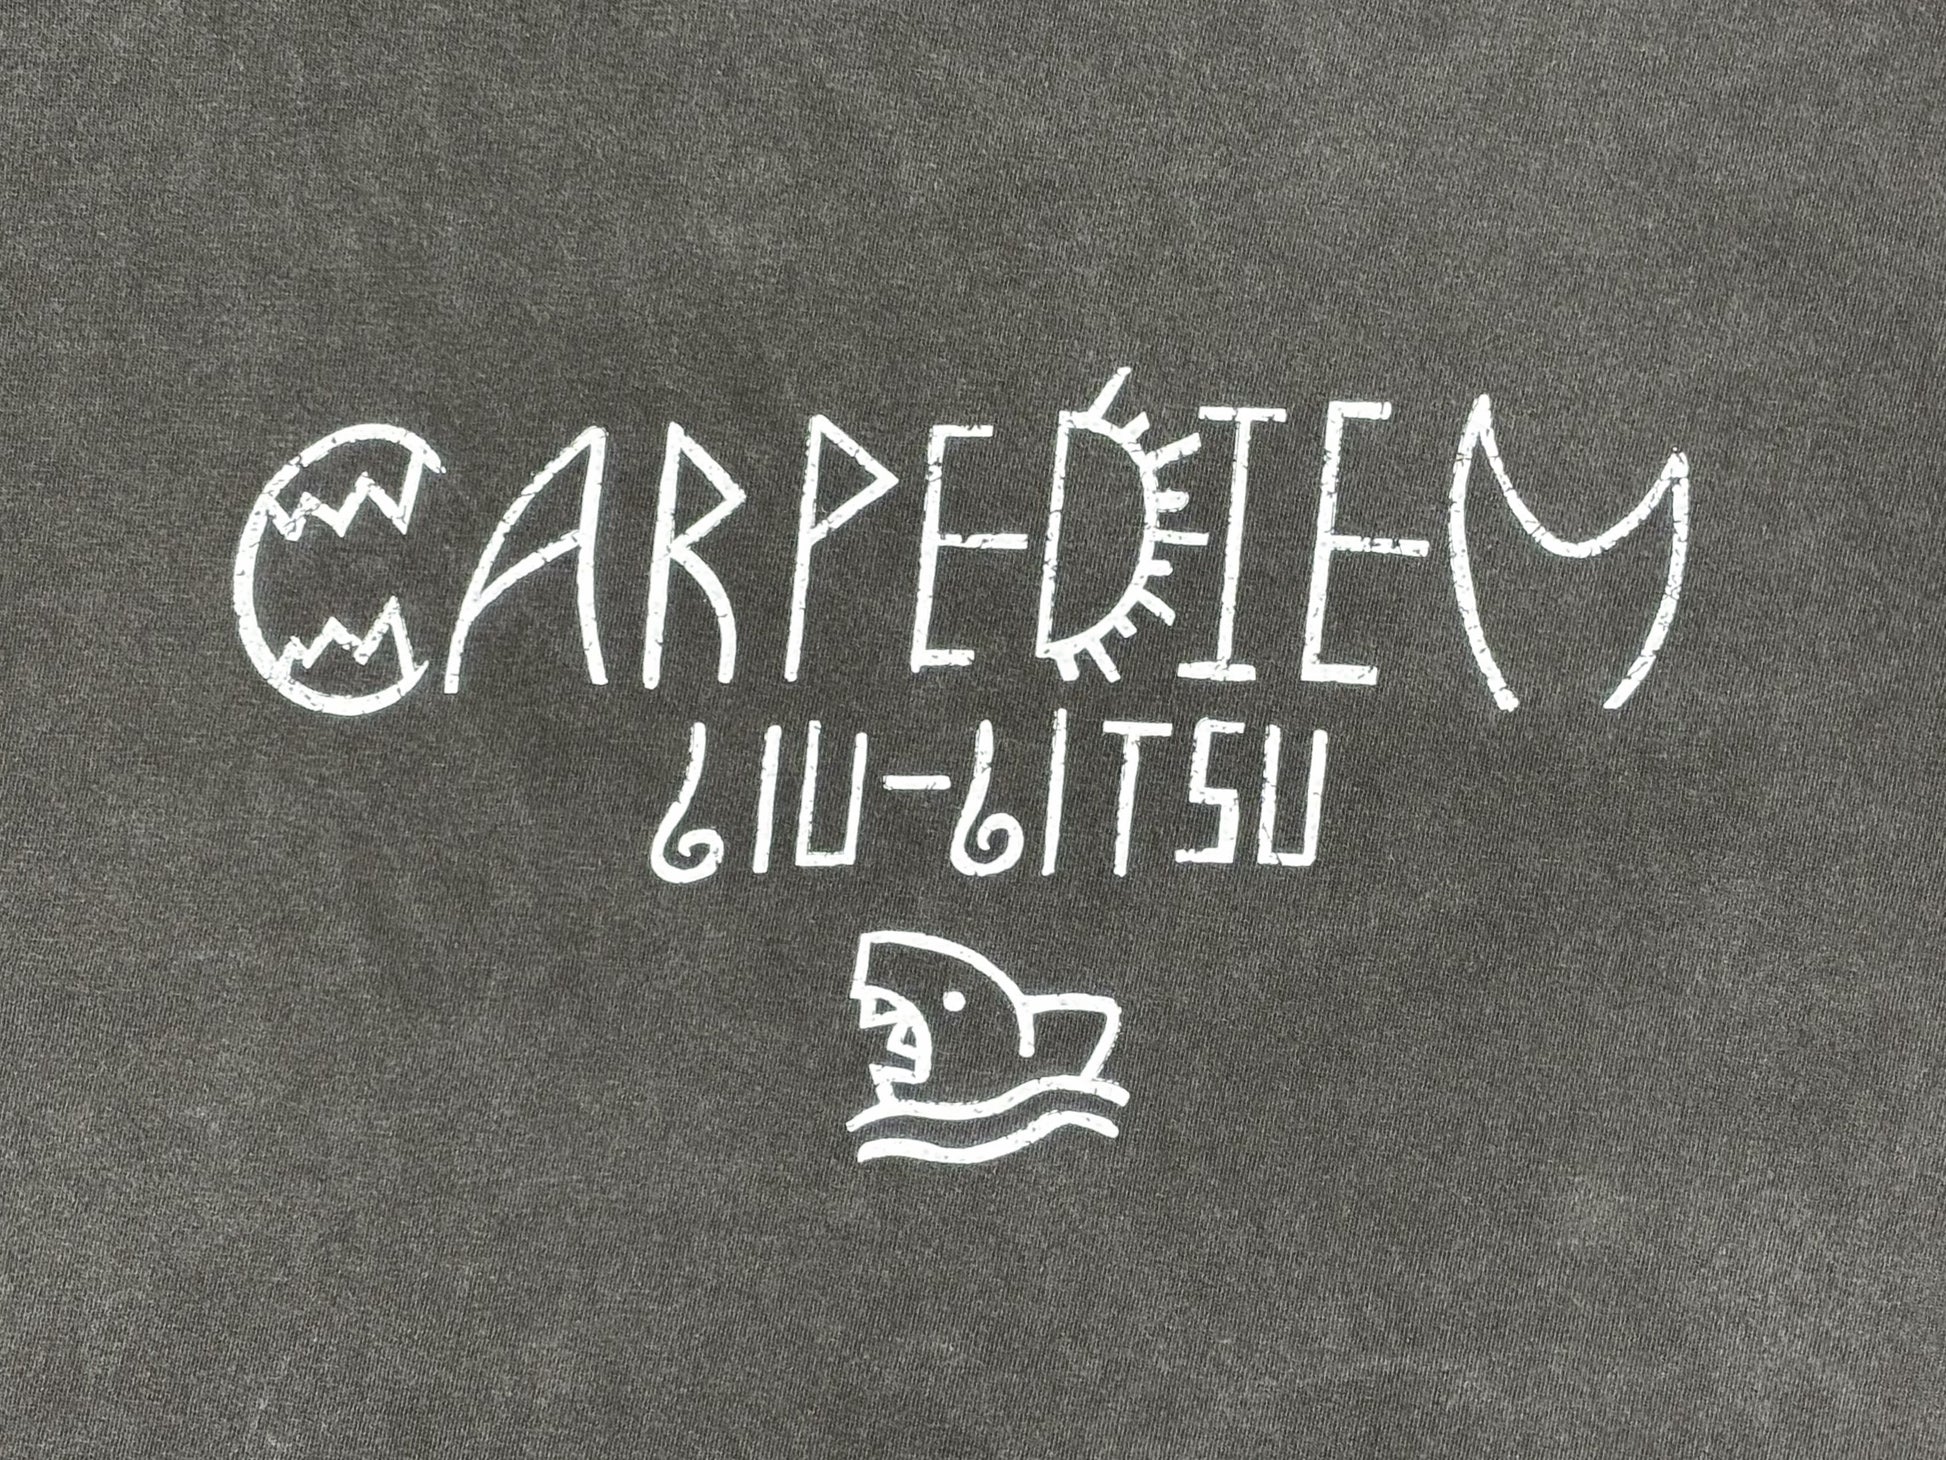 CARPEDIEM
JIU-JITSU